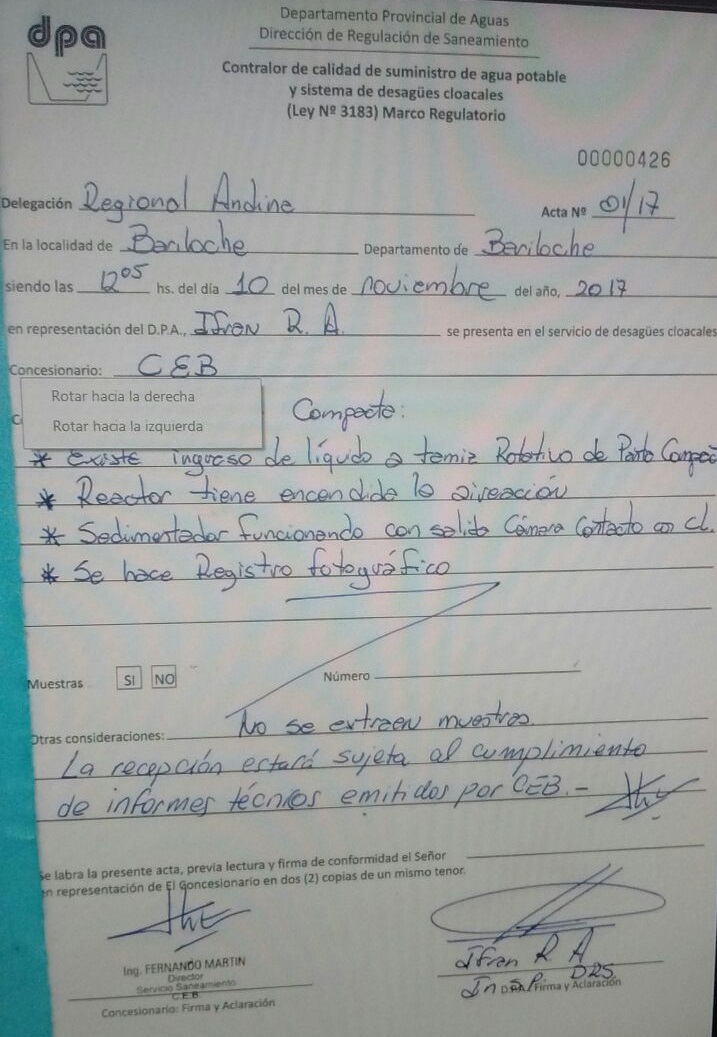 dpa
Departamento Provincial de Aguas
Dirección de Regulación de Saneamiento
Contralor de calidad de suministro de agua potable
y sistema de desagües cloacales
(Ley Nº 3183) Marco Regulatorio
00000426
Delegación Regional Andina Acta Nº 01/17
En la localidad de Bariloche Departamento de Bariloche
siendo las 12⁰⁵ hs. del día 10 del mes de noviembre del año, 2017
en representación del D.P.A., Ifran R. A. se presenta en el servicio de desagües cloacales
Concesionario: CEB
Rotar hacia la derecha
Rotar hacia la izquierda
Compacta:
* Existe ingreso de líquido a tamiz Rotativo de Planta
* Reactor tiene encendida la aireación
* Sedimentador funcionando con salida Cámara Contacto con Cl.
* Se hace Registro fotográfico
Muestras SI NO Número
Otras consideraciones: No se extraen muestras.
La recepción estará sujeta al cumplimiento
de informes técnicos emitidos por CEB.-
Se labra la presente acta, previa lectura y firma de conformidad el Señor
en representación de El Concesionario en dos (2) copias de un mismo tenor.
Ing. FERNANDO MARTIN
Director
Servicio Saneamiento
C.E.B.
Concesionario: Firma y Aclaración
Ifran R. A
DRS
Firma y Aclaración